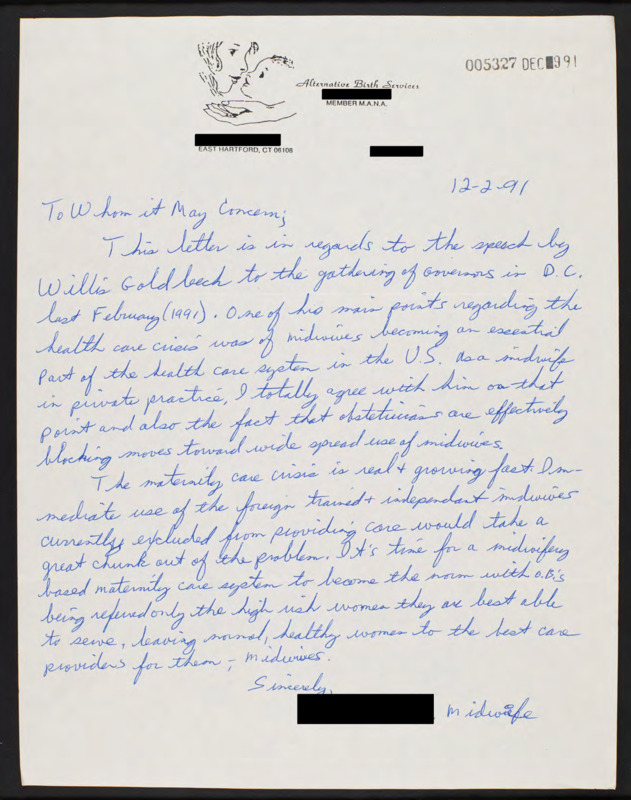 005327 DEC 991
Alternative Birth Services
MEMBER M.A.N.A.
EAST HARTFORD, CT 06108
12-2-91
To Whom it May Concern;
This letter is in regards to the speech by
Willis Goldbeck to the gathering of Governors in D.C.
last February (1991). One of his main points regarding the
health care crisis was of midwives becoming an essential
part of the health care system in the U.S. As a midwife
in private practice, I totally agree with him on that
point and also the fact that obstetricians are effectively
blocking moves toward wide spread use of midwives.
The maternity care crisis is real + growing fast. Im-
mediate use of the foreign trained + independant midwives
currently excluded from providing care would take a
great chunk out of the problem. It's time for a midwifery
based maternity care system to become the norm with O.B.'s
being refered only the high risk women they are best able
to serve, leaving normal, healthy women to the best care
providers for them - midwives.
Sincerely,
Midwife